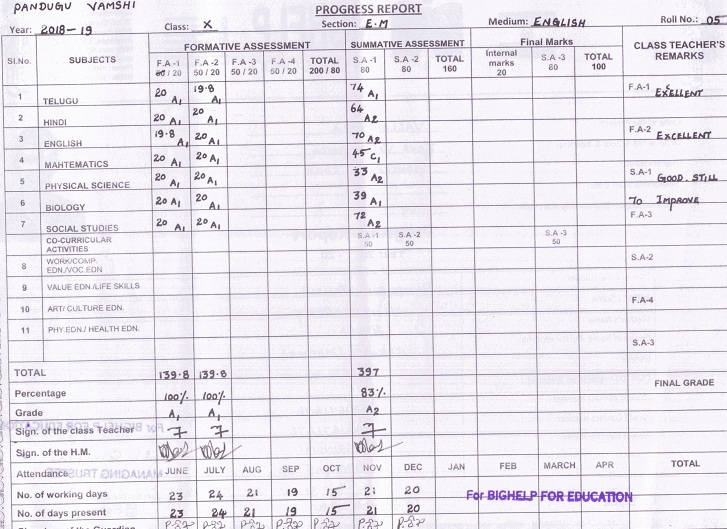 PANDUGU VAMSHI
PROGRESS REPORT
Year: 2018-19 Class: X Section: E.M Medium: ENGLISH Roll No.: 05
Sl.No. SUBJECTS FORMATIVE ASSESSMENT SUMMATIVE ASSESSMENT Final Marks CLASS TEACHER'S REMARKS
F.A -1 50 / 20 F.A -2 50 / 20 F.A -3 50 / 20 F.A -4 50 / 20 TOTAL 200 / 80 S.A -1 80 S.A -2 80 TOTAL 160 Internal marks 20 S.A -3 80 TOTAL 100
1 TELUGU 20 A1 19.8 A1 74 A1 F.A-1 EXELLENT
2 HINDI 20 A1 20 A1 64 A2
3 ENGLISH 19.8 A1 20 A1 70 A2 F.A-2 EXCELLENT
4 MAHTEMATICS 20 A1 20 A1 45 C1
5 PHYSICAL SCIENCE 20 A1 20 A1 33 A2 S.A-1 GOOD. STILL
6 BIOLOGY 20 A1 20 A1 39 A1 TO IMPROVE
7 SOCIAL STUDIES 20 A1 20 A1 72 A2 F.A-3
CO-CURRICULAR ACTIVITIES S.A -1 50 S.A -2 50 S.A -3 50
8 WORK/COMP. EDN./VOC.EDN S.A-2
9 VALUE EDN./LIFE SKILLS
10 ART/ CULTURE EDN. F.A-4
11 PHY.EDN./ HEALTH EDN.
S.A-3
TOTAL 139.8 139.8 397
Percentage 100% 100% 83% FINAL GRADE
Grade A1 A1 A2
Sign. of the class Teacher
Sign. of the H.M.
Attendance JUNE JULY AUG SEP OCT NOV DEC JAN FEB MARCH APR TOTAL
No. of working days 23 24 21 19 15 21 20
For BIGHELP FOR EDUCATION
No. of days present 23 24 21 19 15 21 20